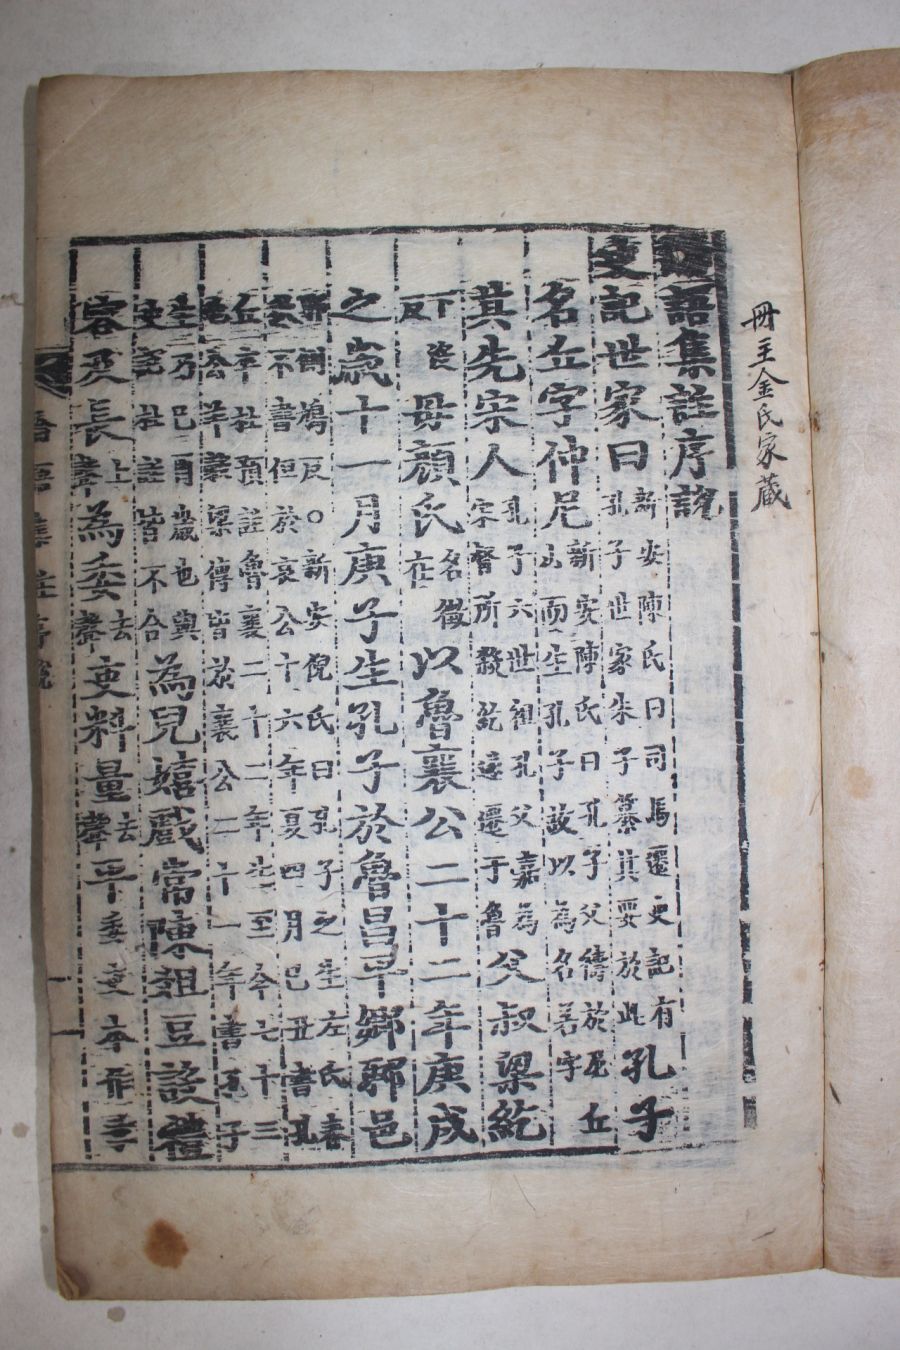 冊主金氏家藏
語集註序說
史記世家曰 新安陳氏曰司馬遷史記有孔子世家朱子纂其要於此 孔子
名丘字仲尼 新安陳氏曰孔子父禱於尼丘山而生孔子故以為名若字
其先宋人 孔子六世祖孔父嘉為宋督所殺紇遂遷于魯 父叔梁紇
下反 母顔氏 名徵在 以魯襄公二十二年庚戌
之歲十一月庚子生孔子於魯昌平鄉郰邑
側鳩反○新安倪氏曰孔子之生左氏春
不書但於哀公十六年夏四月己丑書孔
丘卒杜預註魯襄二十二年生至今七十三
公羊穀梁傳皆於襄公二十一年書孔子
生乃巳酉歲也與史記杜註皆不合 為兒嬉戲常陳俎豆設禮
容及長 上聲 為委 去聲 吏料量 去聲 平 委吏本作季
語集註序說 一